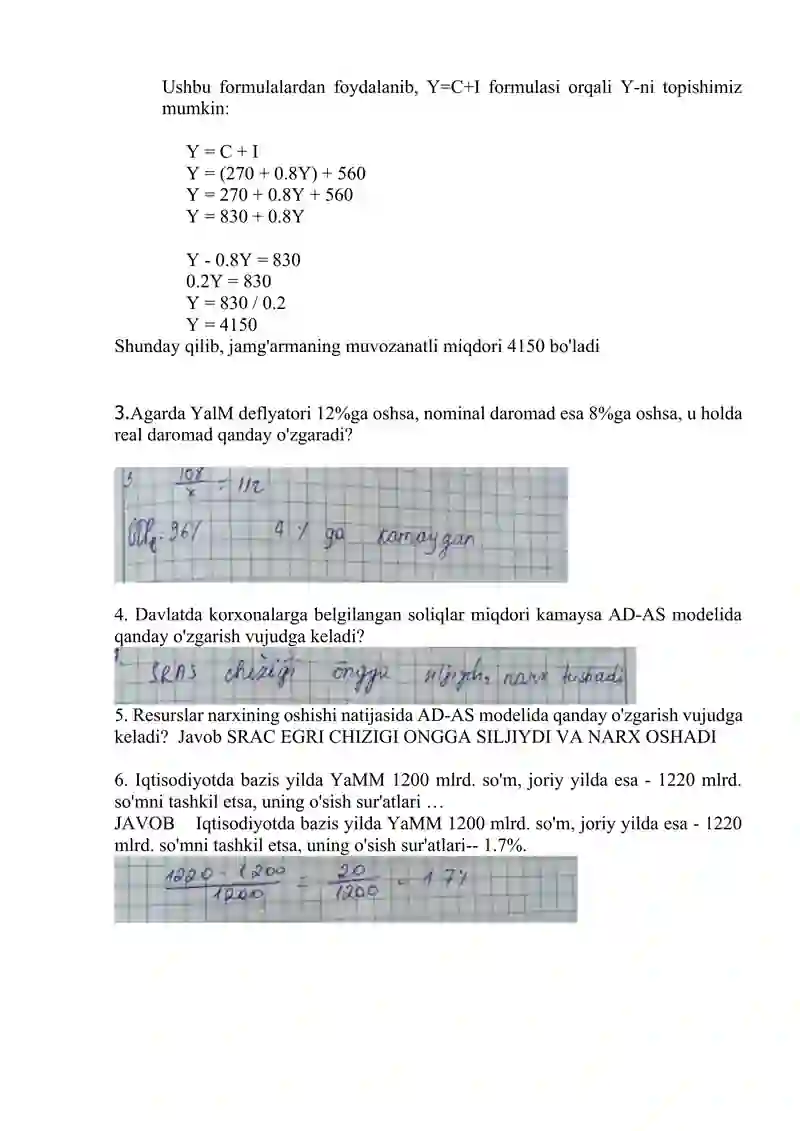 Ushbu formulalardan foydalanib, Y=C+I formulasi orqali Y-ni topishimiz
mumkin:
Y = C + I
Y = (270 + 0.8Y) + 560
Y = 270 + 0.8Y + 560
Y = 830 + 0.8Y
Y - 0.8Y = 830
0.2Y = 830
Y = 830 / 0.2
Y = 4150
Shunday qilib, jamg'armaning muvozanatli miqdori 4150 bo'ladi
3.Agarda YalM deflyatori 12%ga oshsa, nominal daromad esa 8%ga oshsa, u holda
real daromad qanday o'zgaradi?
3 108
x = 112
96% 4 % ga kamaygan
4. Davlatda korxonalarga belgilangan soliqlar miqdori kamaysa AD-AS modelida
qanday o'zgarish vujudga keladi?
SRAS chizigi ongga siljiydi, narx tushadi
5. Resurslar narxining oshishi natijasida AD-AS modelida qanday o'zgarish vujudga
keladi? Javob SRAC EGRI CHIZIGI ONGGA SILJIYDI VA NARX OSHADI
6. Iqtisodiyotda bazis yilda YaMM 1200 mlrd. so'm, joriy yilda esa - 1220 mlrd.
so'mni tashkil etsa, uning o'sish sur'atlari …
JAVOB Iqtisodiyotda bazis yilda YaMM 1200 mlrd. so'm, joriy yilda esa - 1220
mlrd. so'mni tashkil etsa, uning o'sish sur'atlari-- 1.7%.
1220 - 1200 = 20 = 1.7%
1200 1200